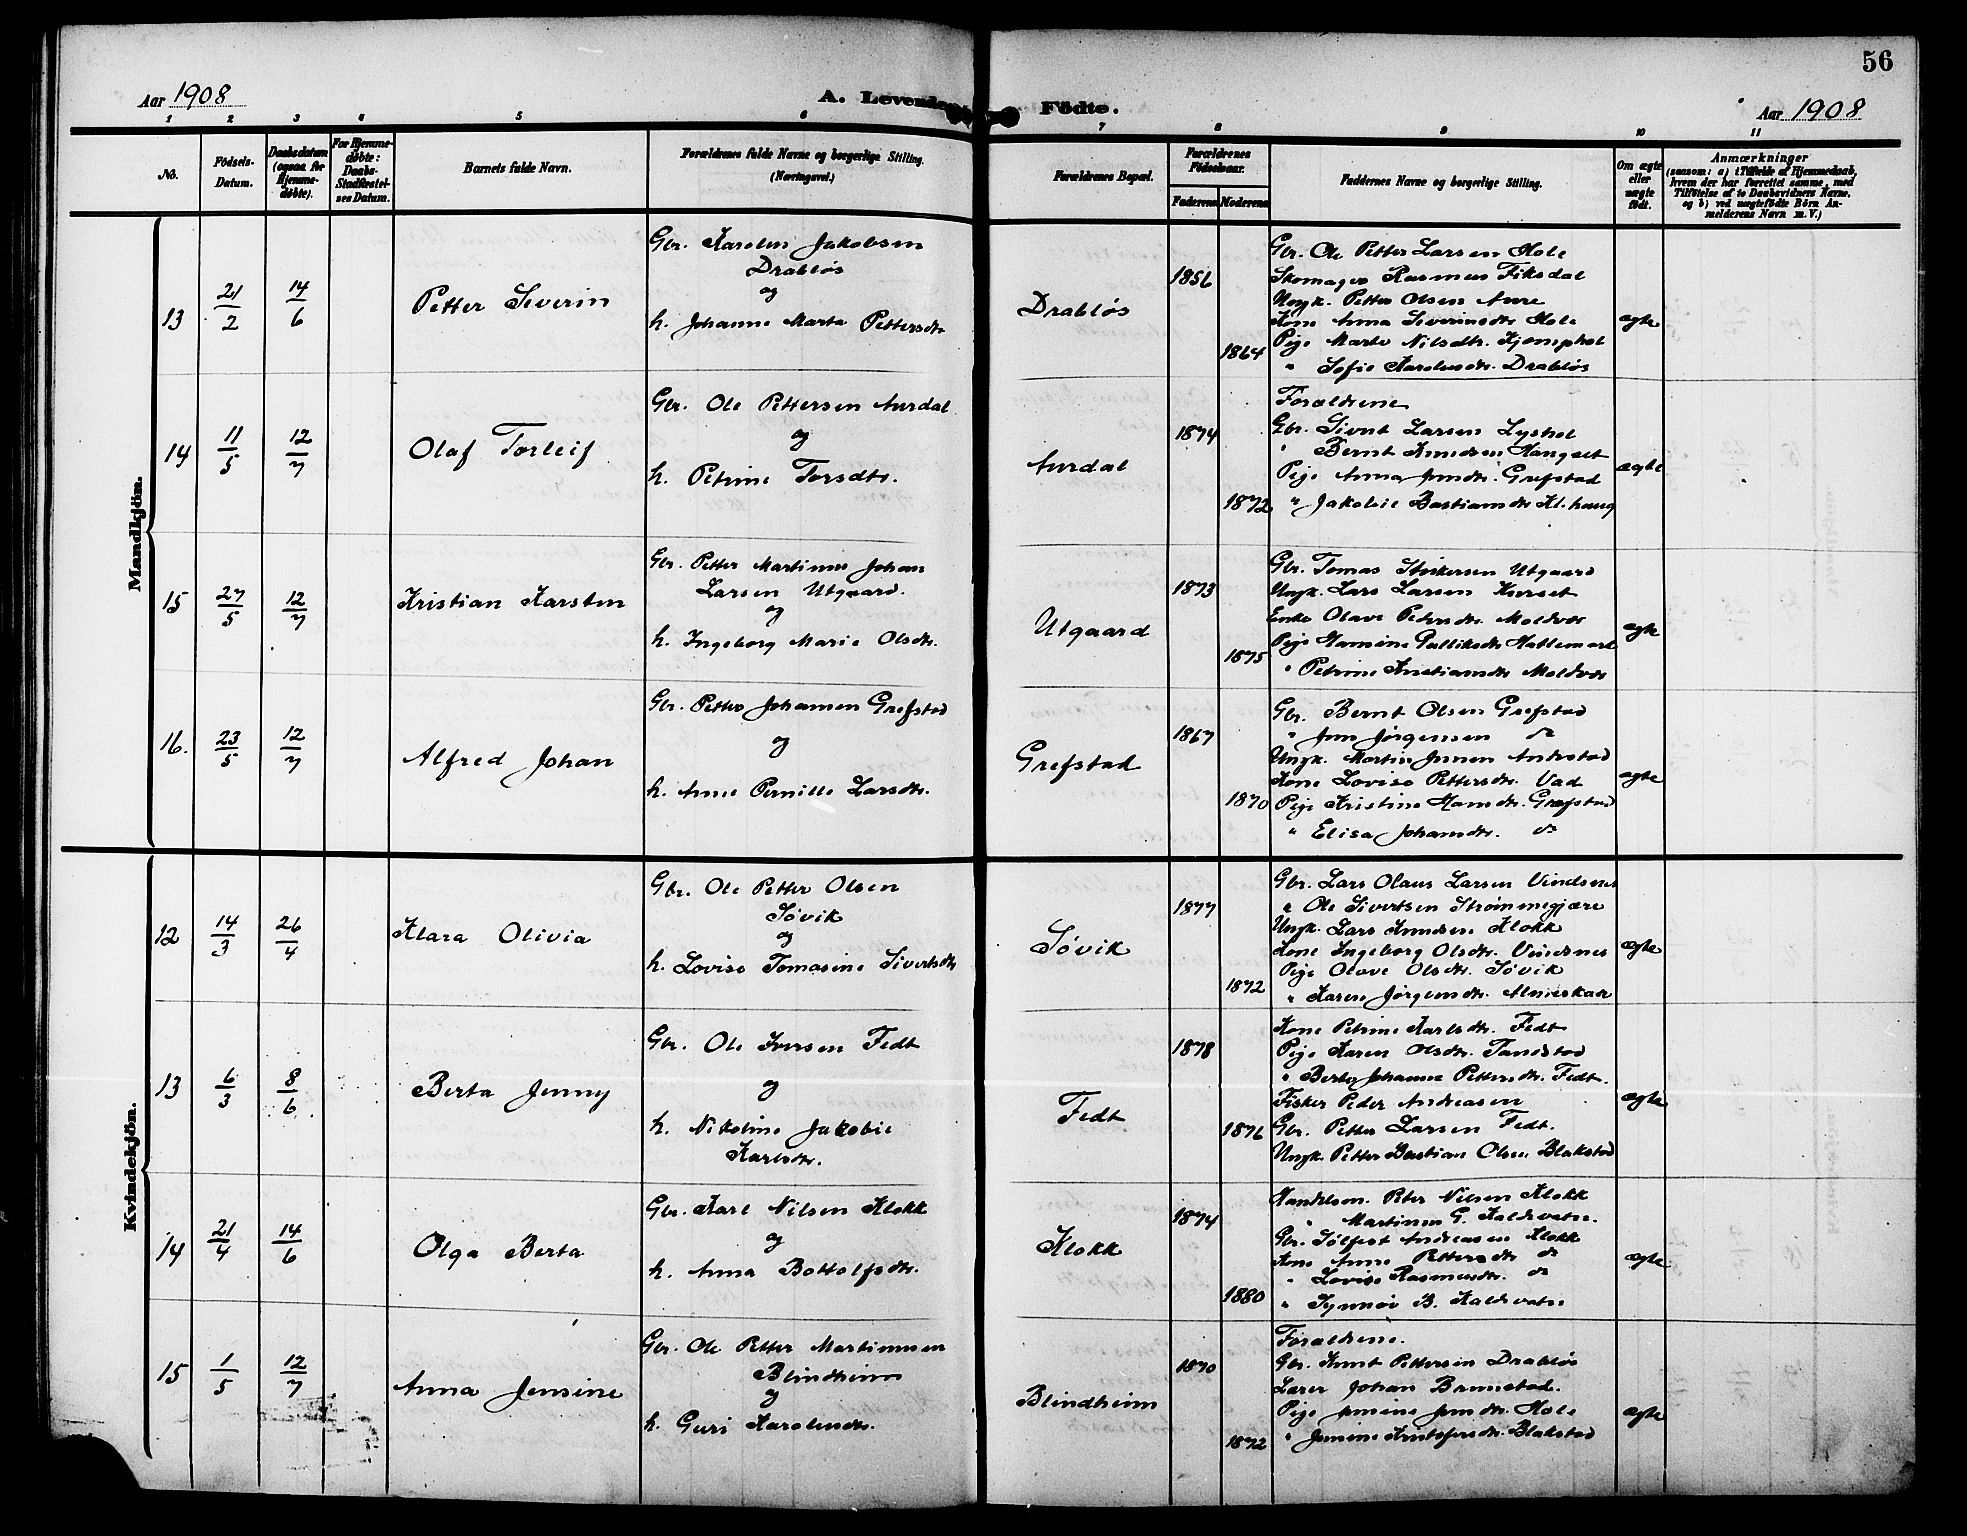 56
Aar 1908
A. Levende Fødte.
Aar 1908
1 2 3 4 5 6 7 8 9 10 11
No.
Fødsels-Datum.
Daabsdatum (ogsaa for Hjemmedøbte).
For Hjemmedøbte: Daabs-Stadfæstelses Datum.
Barnets fulde Navn.
Forældrenes fulde Navne og borgerlige Stilling. (Næringsvei.)
Forældrenes Bopæl.
Forældrenes Fødselsaar.
Faderens Moderens
Faddernes Navne og borgerlige Stilling.
Om ægte eller uægte født.
Anmærkninger
(saasom: a) i Tilfælde af Hjemmedaab, hvem der har forrettet samme, med Tilføielse af to Daabsvidners Navne, og b) ved uægtefødte Børn Anmelderens Navn m. V.)
Mandkjön.
13
21/2
14/6
Petter Severin
Gbr. Karolus Jakobsen
Drabløs
og
h. Johanne Marta Pettersdtr
Drabløs
1856
1864
Gbr. Ole Petter Larsen Hole
Skomager Rasmus Fiksdal
Ungk. Petter Olsen Aure
Kone Anna Severinsdtr Hole
Pige Marte Nilsdtr. Kjemphol
" Sofie Karolusdtr. Drabløs
ægte
14
11/5
12/7
Olaf Torleif
Gbr. Ole Pettersen Aurdal
og
h. Petrine Torsdtr.
Aurdal
1874
1872
Forældrene
Gbr. Sivert Larsen Lyshol
" Bernt Knudsen Hangset
Pige Anna Jensdtr. Grefstad
" Jakobie Bastiansdtr Kl.haug
ægte
15
27/5
12/7
Kristian Karsten
Gbr. Petter Martinus Johan
Larsen Utgaard.
og
h. Ingeborg Marie Olsdtr.
Utgaard
1873
1875
Gbr. Tomas Sterkersen Utgaard
Ungk. Lars Larsen Kurset
Enke Olave Pedersdtr. Moldvær
Pige Hansine Hatlemark
" Petrine Kristiansdtr Moldvær
ægte
16.
23/5
12/7
Alfred Johan
Gbr. Petter Johansen Grefstad
og
h. Anne Pernille Larsdtr.
Grefstad
1867
1870
Gbr. Bernt Olsen Grefstad
" Jens Jørgensen do
Ungk. Martin Jensen Andestad
Kone Lovise Pettersdtr. Vad
Pige Kristine Hansdtr. Grefstad
" Elisa Johansdtr. do
ægte
Kvindekjön.
12
14/3
26/4
Klara Olivia
Gbr. Ole Petter Olsen
Søvik
og
h. Lovise Tomasine Sivertsdtr
Søvik
1877
1872
Gbr. Lars Olaus Larsen Vindsnes
" Ole Sivertsen Strømmegjære
Ungk. Lars Knudsen Klokk
Kone Ingeborg Olsdtr. Vindsnes
Pige Olave Olsdtr. Søvik
" Karen Jørgensdtr. Almeskaar
ægte
13
6/3
8/6
Berta Jenny
Gbr. Ole Iversen Fedt
og
h. Nikoline Jakobie
Karlsdtr.
Fedt
1878
1876
Kone Petrine Karlsdtr. Fedt
Pige Karen Olsdtr. Tandstad
" Berta Johanne Pettersdtr. Fedt.
Fisker Peder Andreasen
Gbr. Petter Larsen Fedt.
Ungk. Petter Bastian Olsen Blakstad
ægte
14
21/4
14/6
Olga Berta
Gbr. Karl Nilsen Klokk
og
h. Anna Bottolfsdtr.
Klokk
1874
1880
Handelsm. Peter Nilsen Klokk
" Martinus G. Kaldvatn.
Gbr. Sølfest Andreasen Klokk
Kone Anne Pettersdtr do
" Lovise Rasmusdtr. do
" Synnøv B. Kaldvatn
ægte
15
1/5
12/7
Anna Jensine
Gbr. Ole Petter Martinussen
Blindheim
og
h. Guri Karolusdtr.
Blindheim
1870
1872
Forældrene.
Gbr. Knut Pettersen Drabløs
Lærer Johan Brunstad.
Pige Jensine Jensdtr. Hole
" Jensine Kristofersdtr. Blakstad
ægte